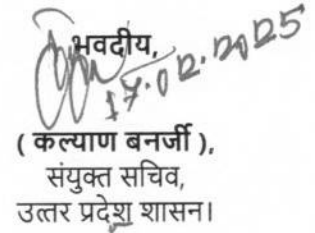 भवदीय,
17.02.2025
( कल्याण बनर्जी ),
संयुक्त सचिव,
उत्तर प्रदेश शासन।